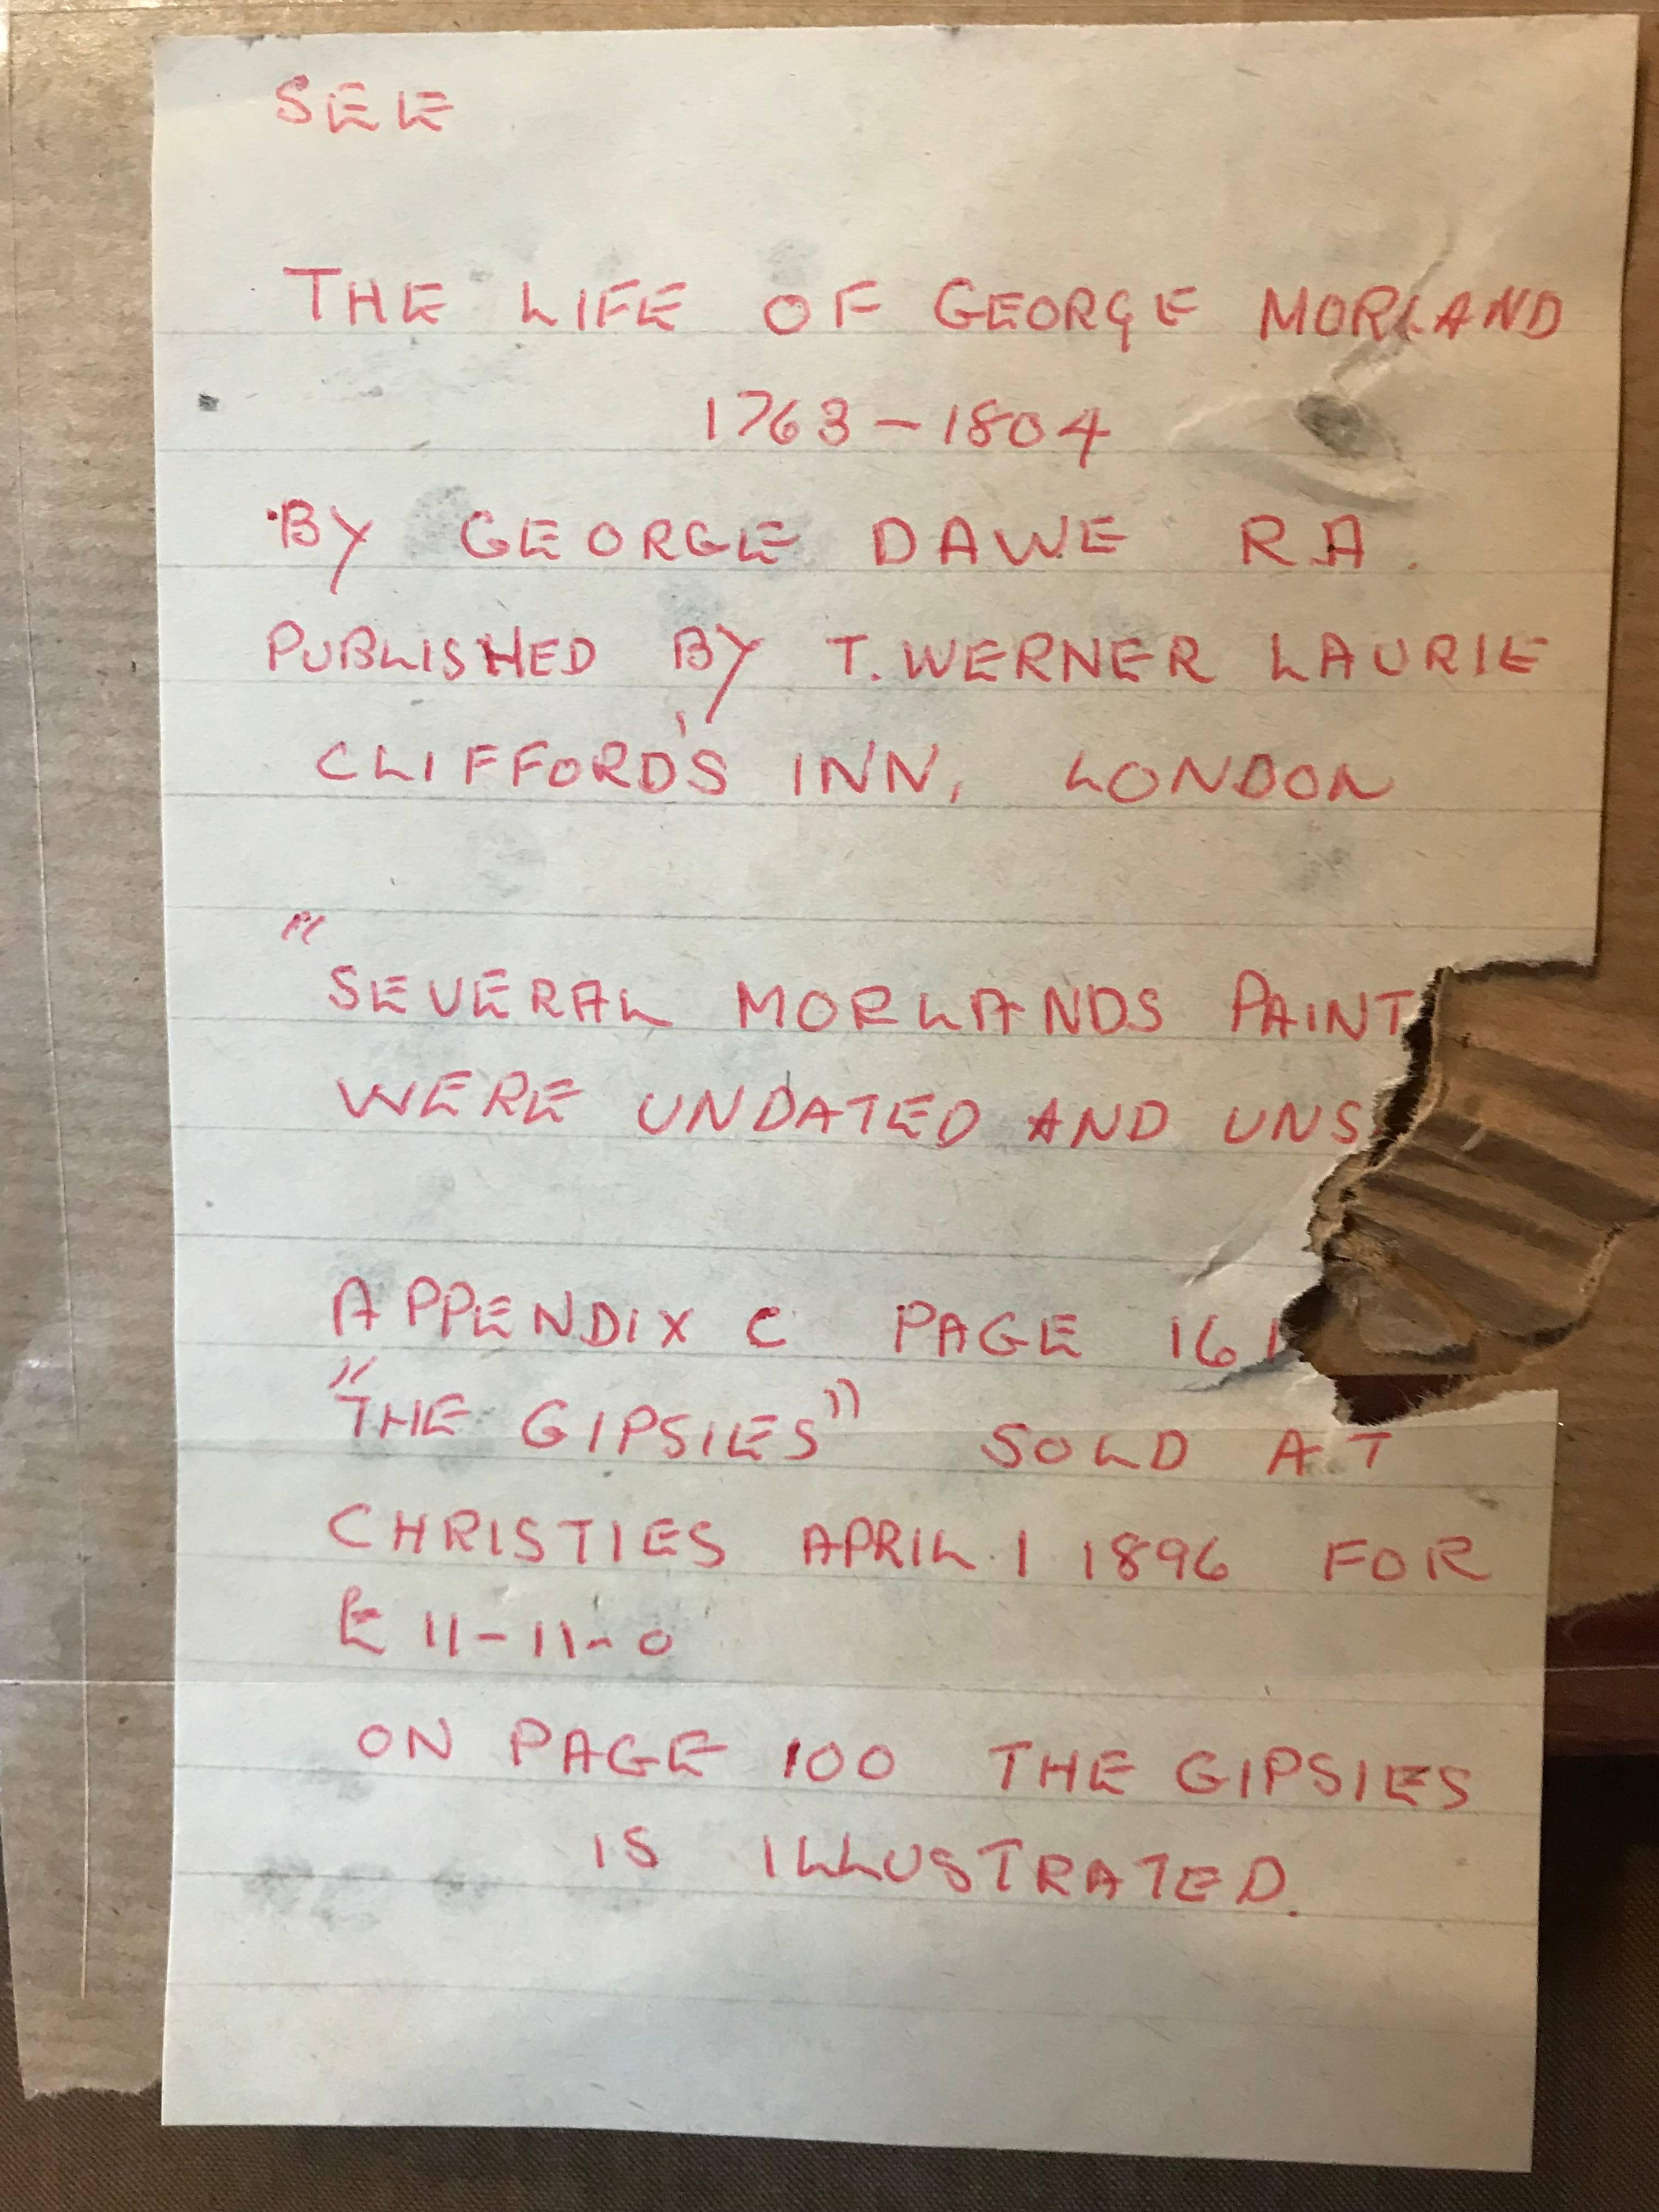 SEE
THE LIFE OF GEORGE MORLAND
1763-1804
BY GEORGE DAWE R.A.
PUBLISHED BY T. WERNER LAURIE
CLIFFORD'S INN, LONDON
"
SEVERAL MORLANDS PAINT
WERE UNDATED AND UNS
APPENDIX C PAGE 161
"THE GIPSIES" SOLD AT
CHRISTIES APRIL 1 1896 FOR
£ 11-11-0
ON PAGE 100 THE GIPSIES
IS ILLUSTRATED.